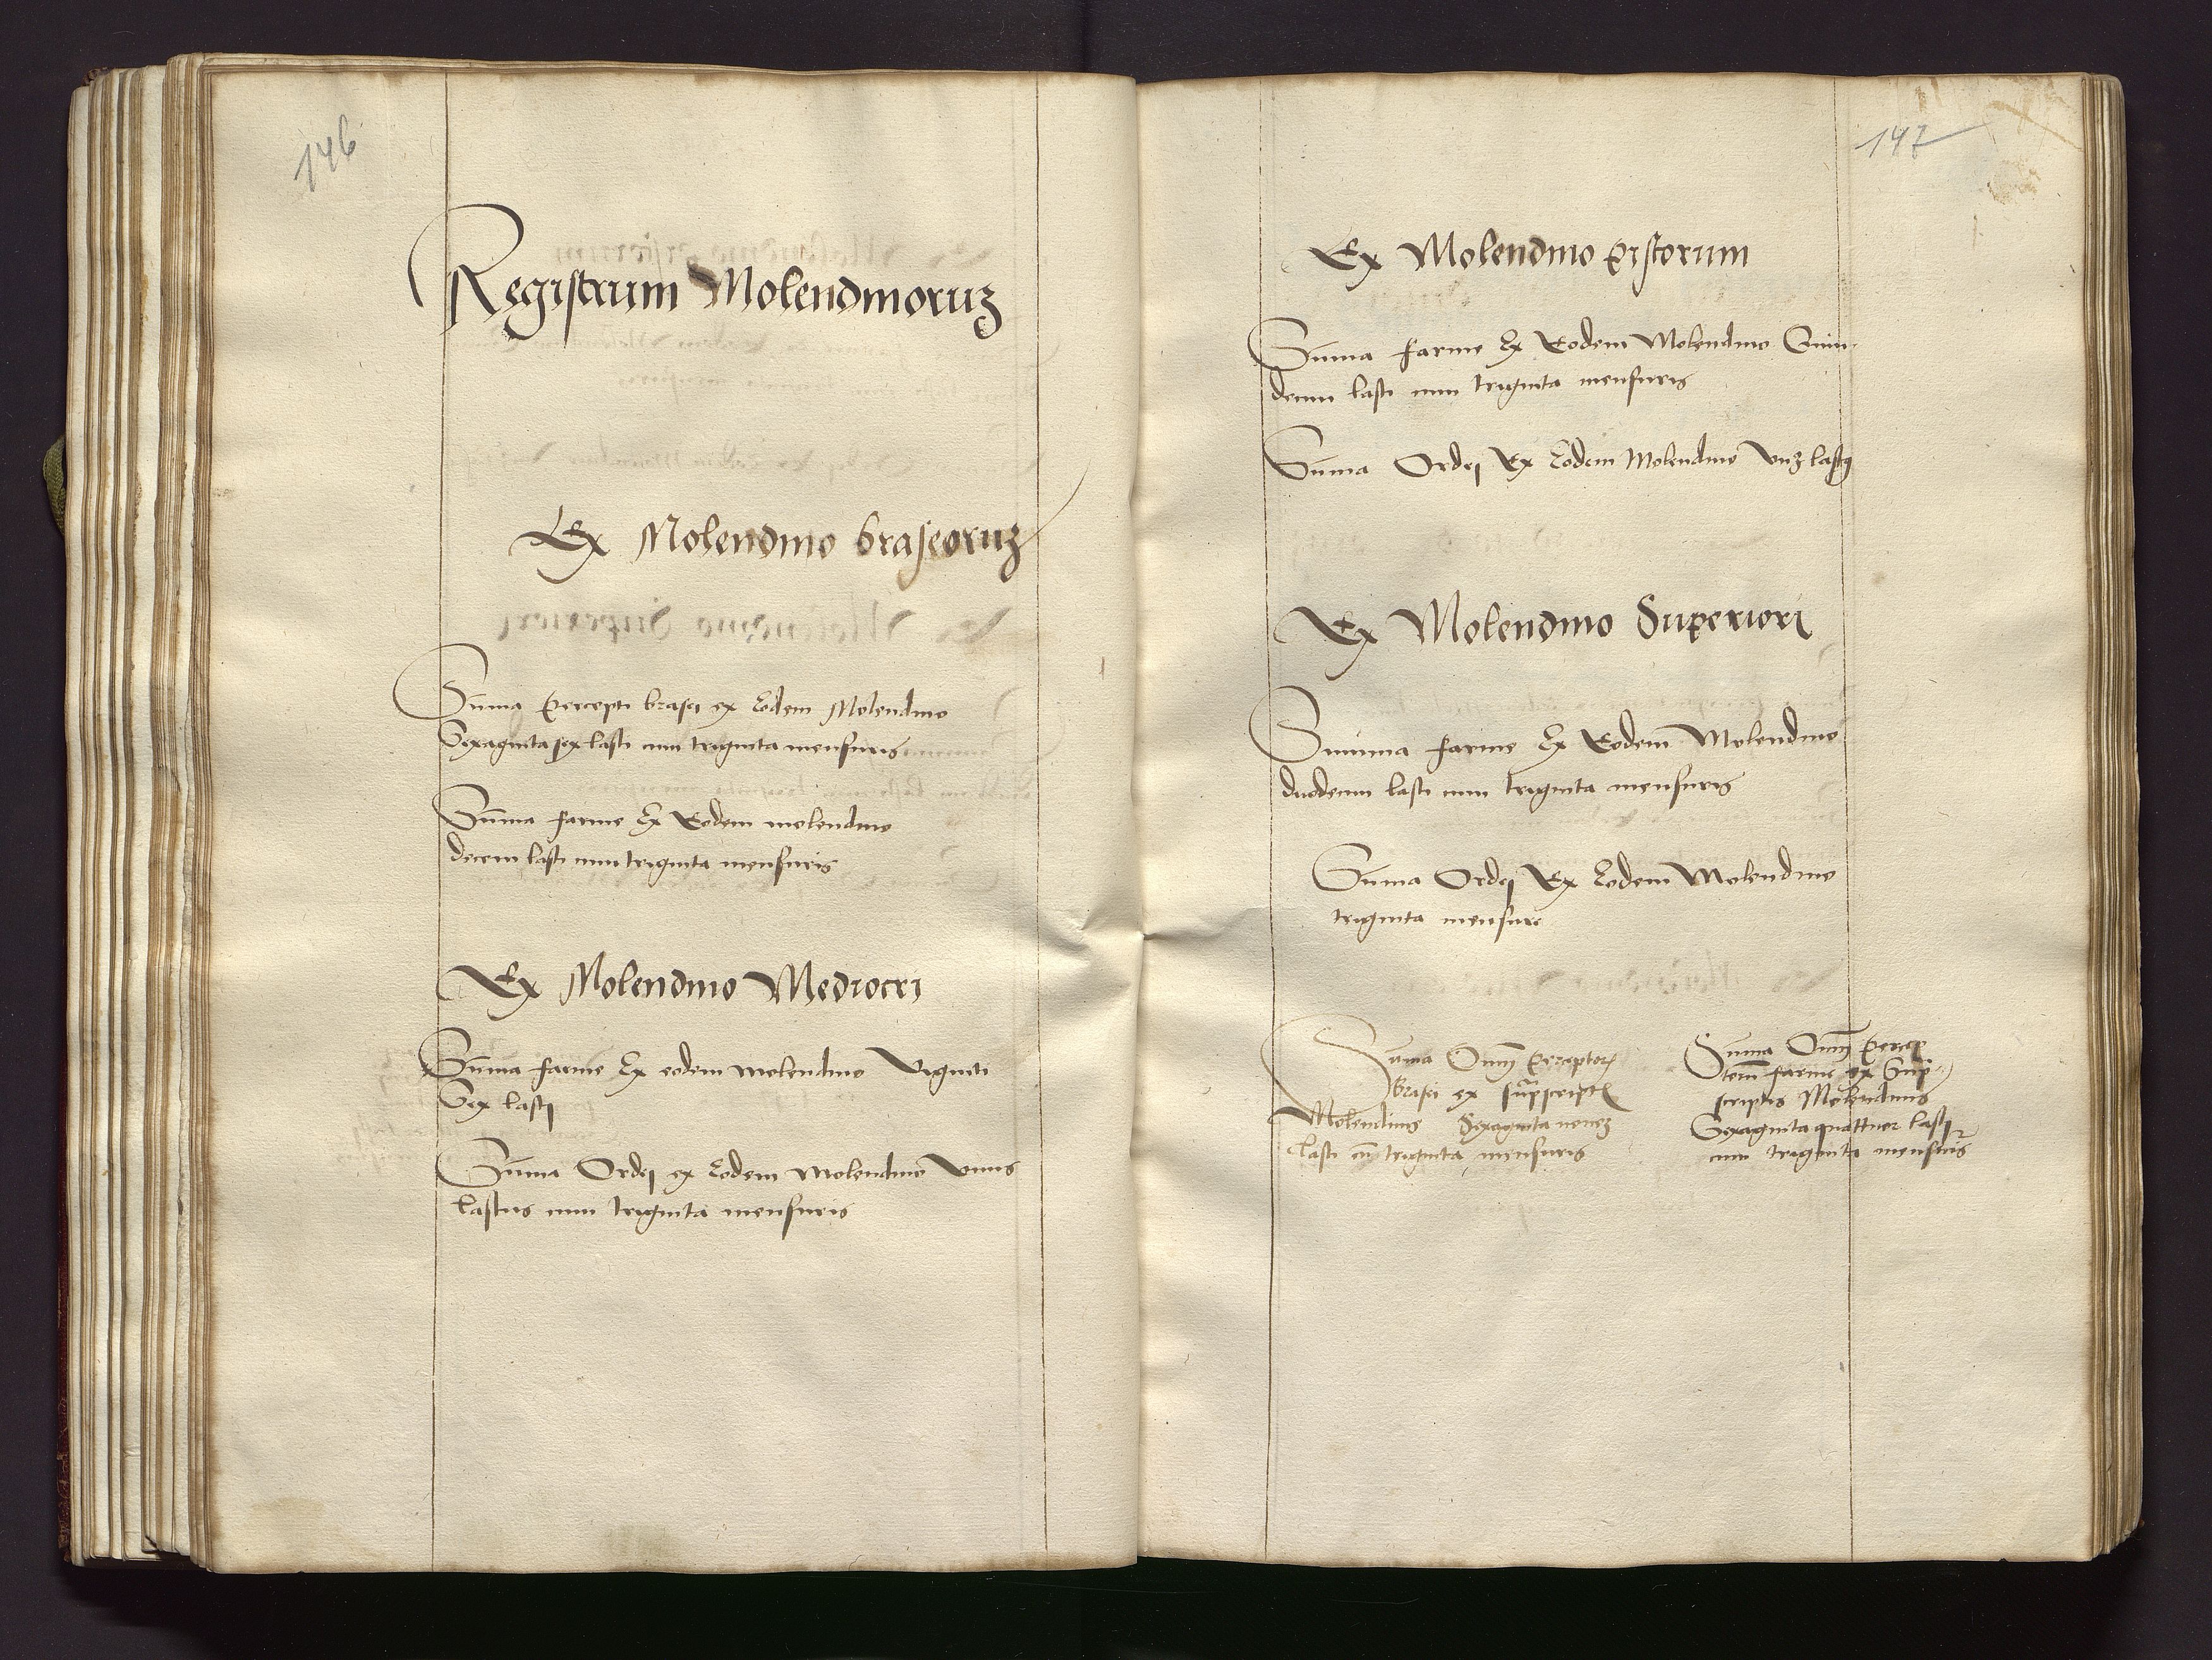 146
Registrum Molendinoruz
Ex Molendino braseoruz
Suma percepti brasei ex Eodem Molendino
Sexaginta sex lasti cum triginta mensuris
Suma farine Ex Eodem molendino
decem lasti cum triginta mensuris
Ex Molendino Mediocri
Suma farine Ex eodem molendino Viginti
Sex lasti
Suma Ordej ex Eodem Molendino Unus
lastus cum triginta mensuris
147
Ex Molendino pistorum
Suma farine Ex Eodem Molendino Quin-
decim lasti cum triginta mensuris
Suma Ordej Ex Eodem Molendino Unz lastq
Ex Molendino Superiori
Summa farine Ex Eodem Molendino
duodecim lasti cum triginta mensuris
Suma Ordej Ex Eodem Molendino
triginta mensure
Suma Omn perceptor
Brasei ex supscript
Molendinis Sexaginta novez
lasti cu triginta mensuris
Suma Omn percep
toru farine ex Sup-
scriptis Molendinis
Sexaginta quattuor lasti
cum triginta mensuris